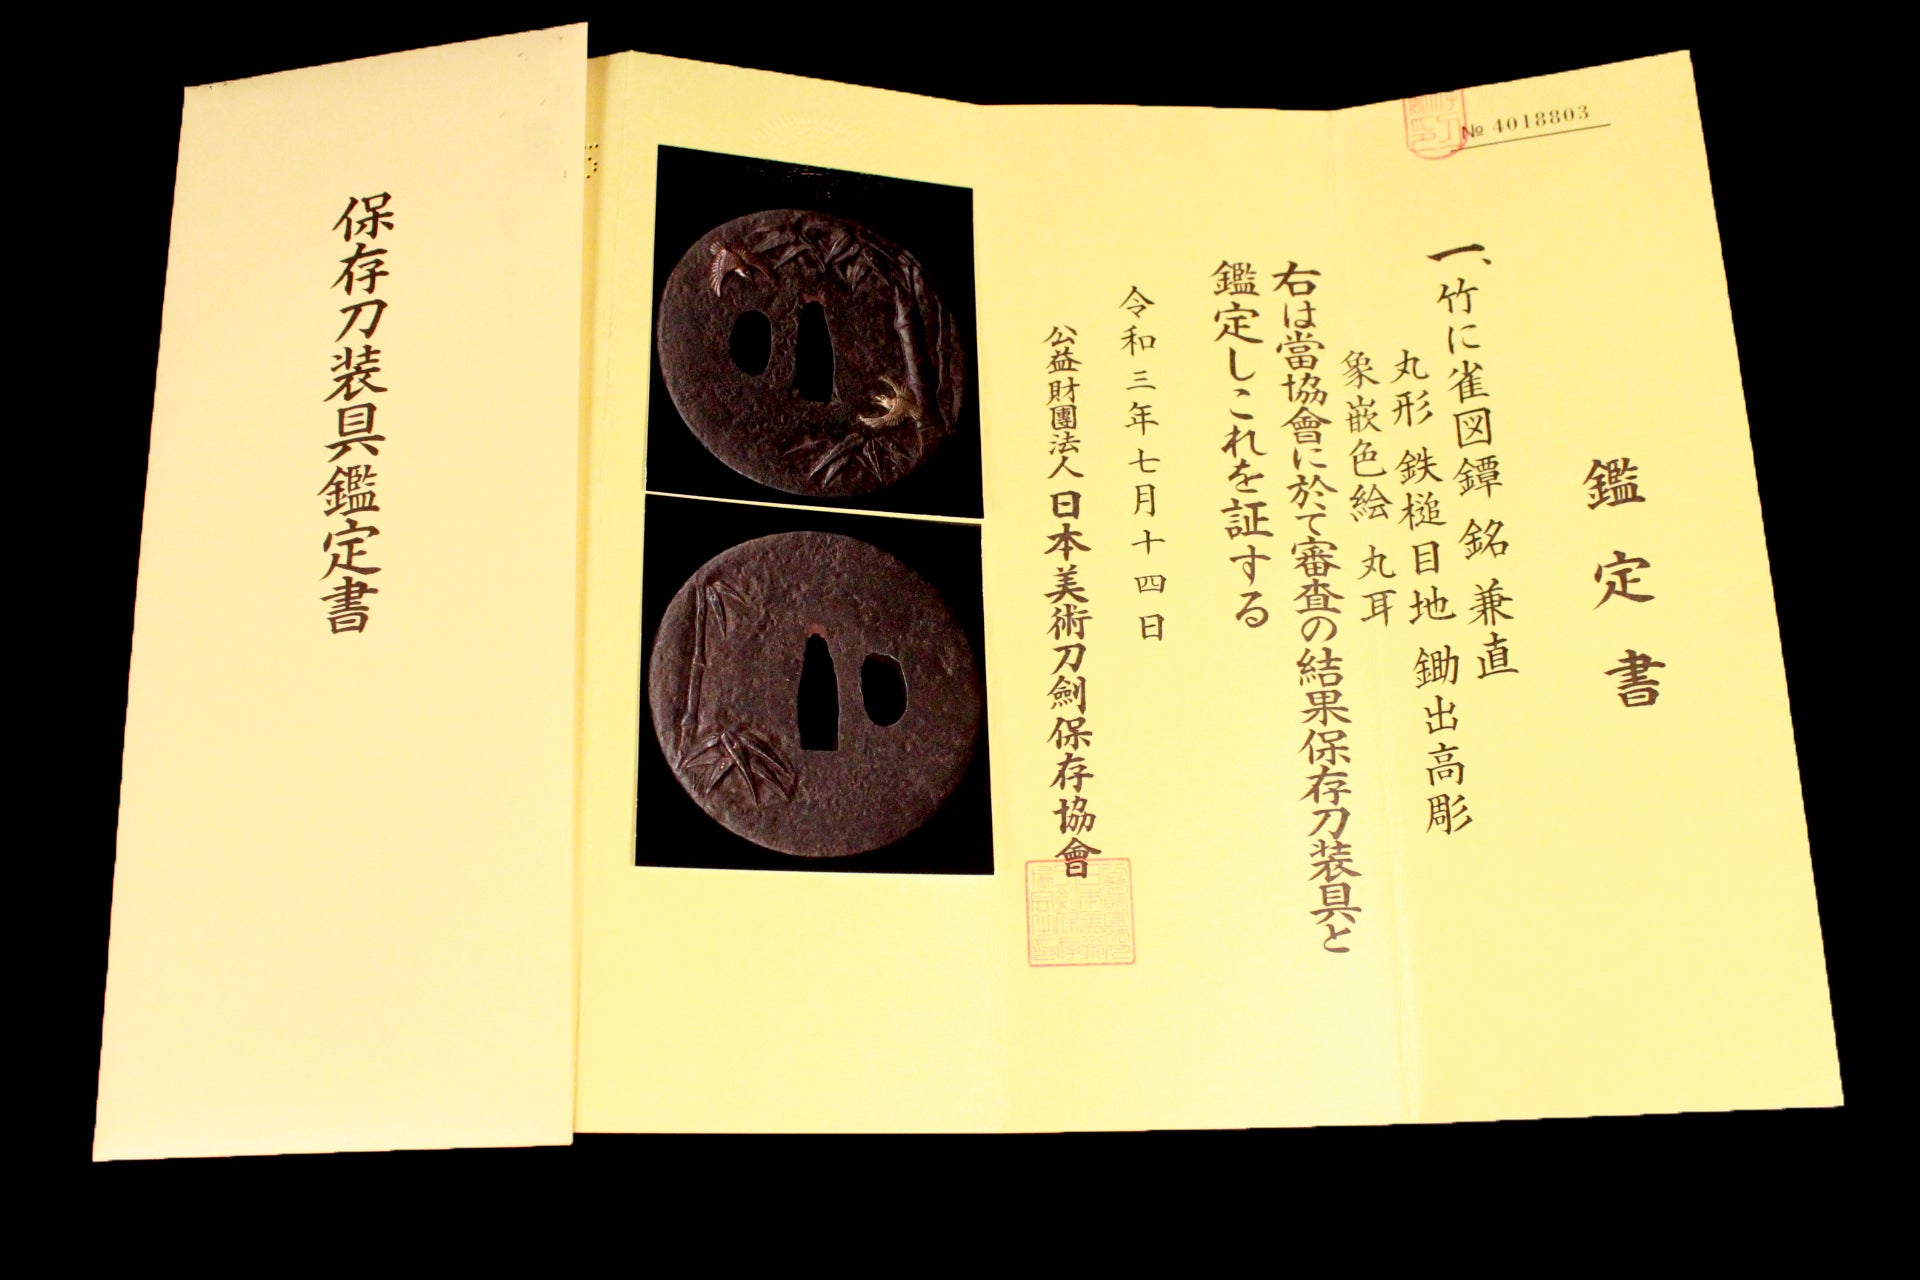 保存刀装具鑑定書
№ 4018803
鑑定書
一、竹に雀図鐔 銘 兼直
丸形 鉄槌目地 鋤出高彫
象嵌色絵 丸耳
右は當協會に於て審査の結果保存刀装具と
鑑定しこれを証する
令和三年七月十四日
公益財團法人 日本美術刀劍保存協會